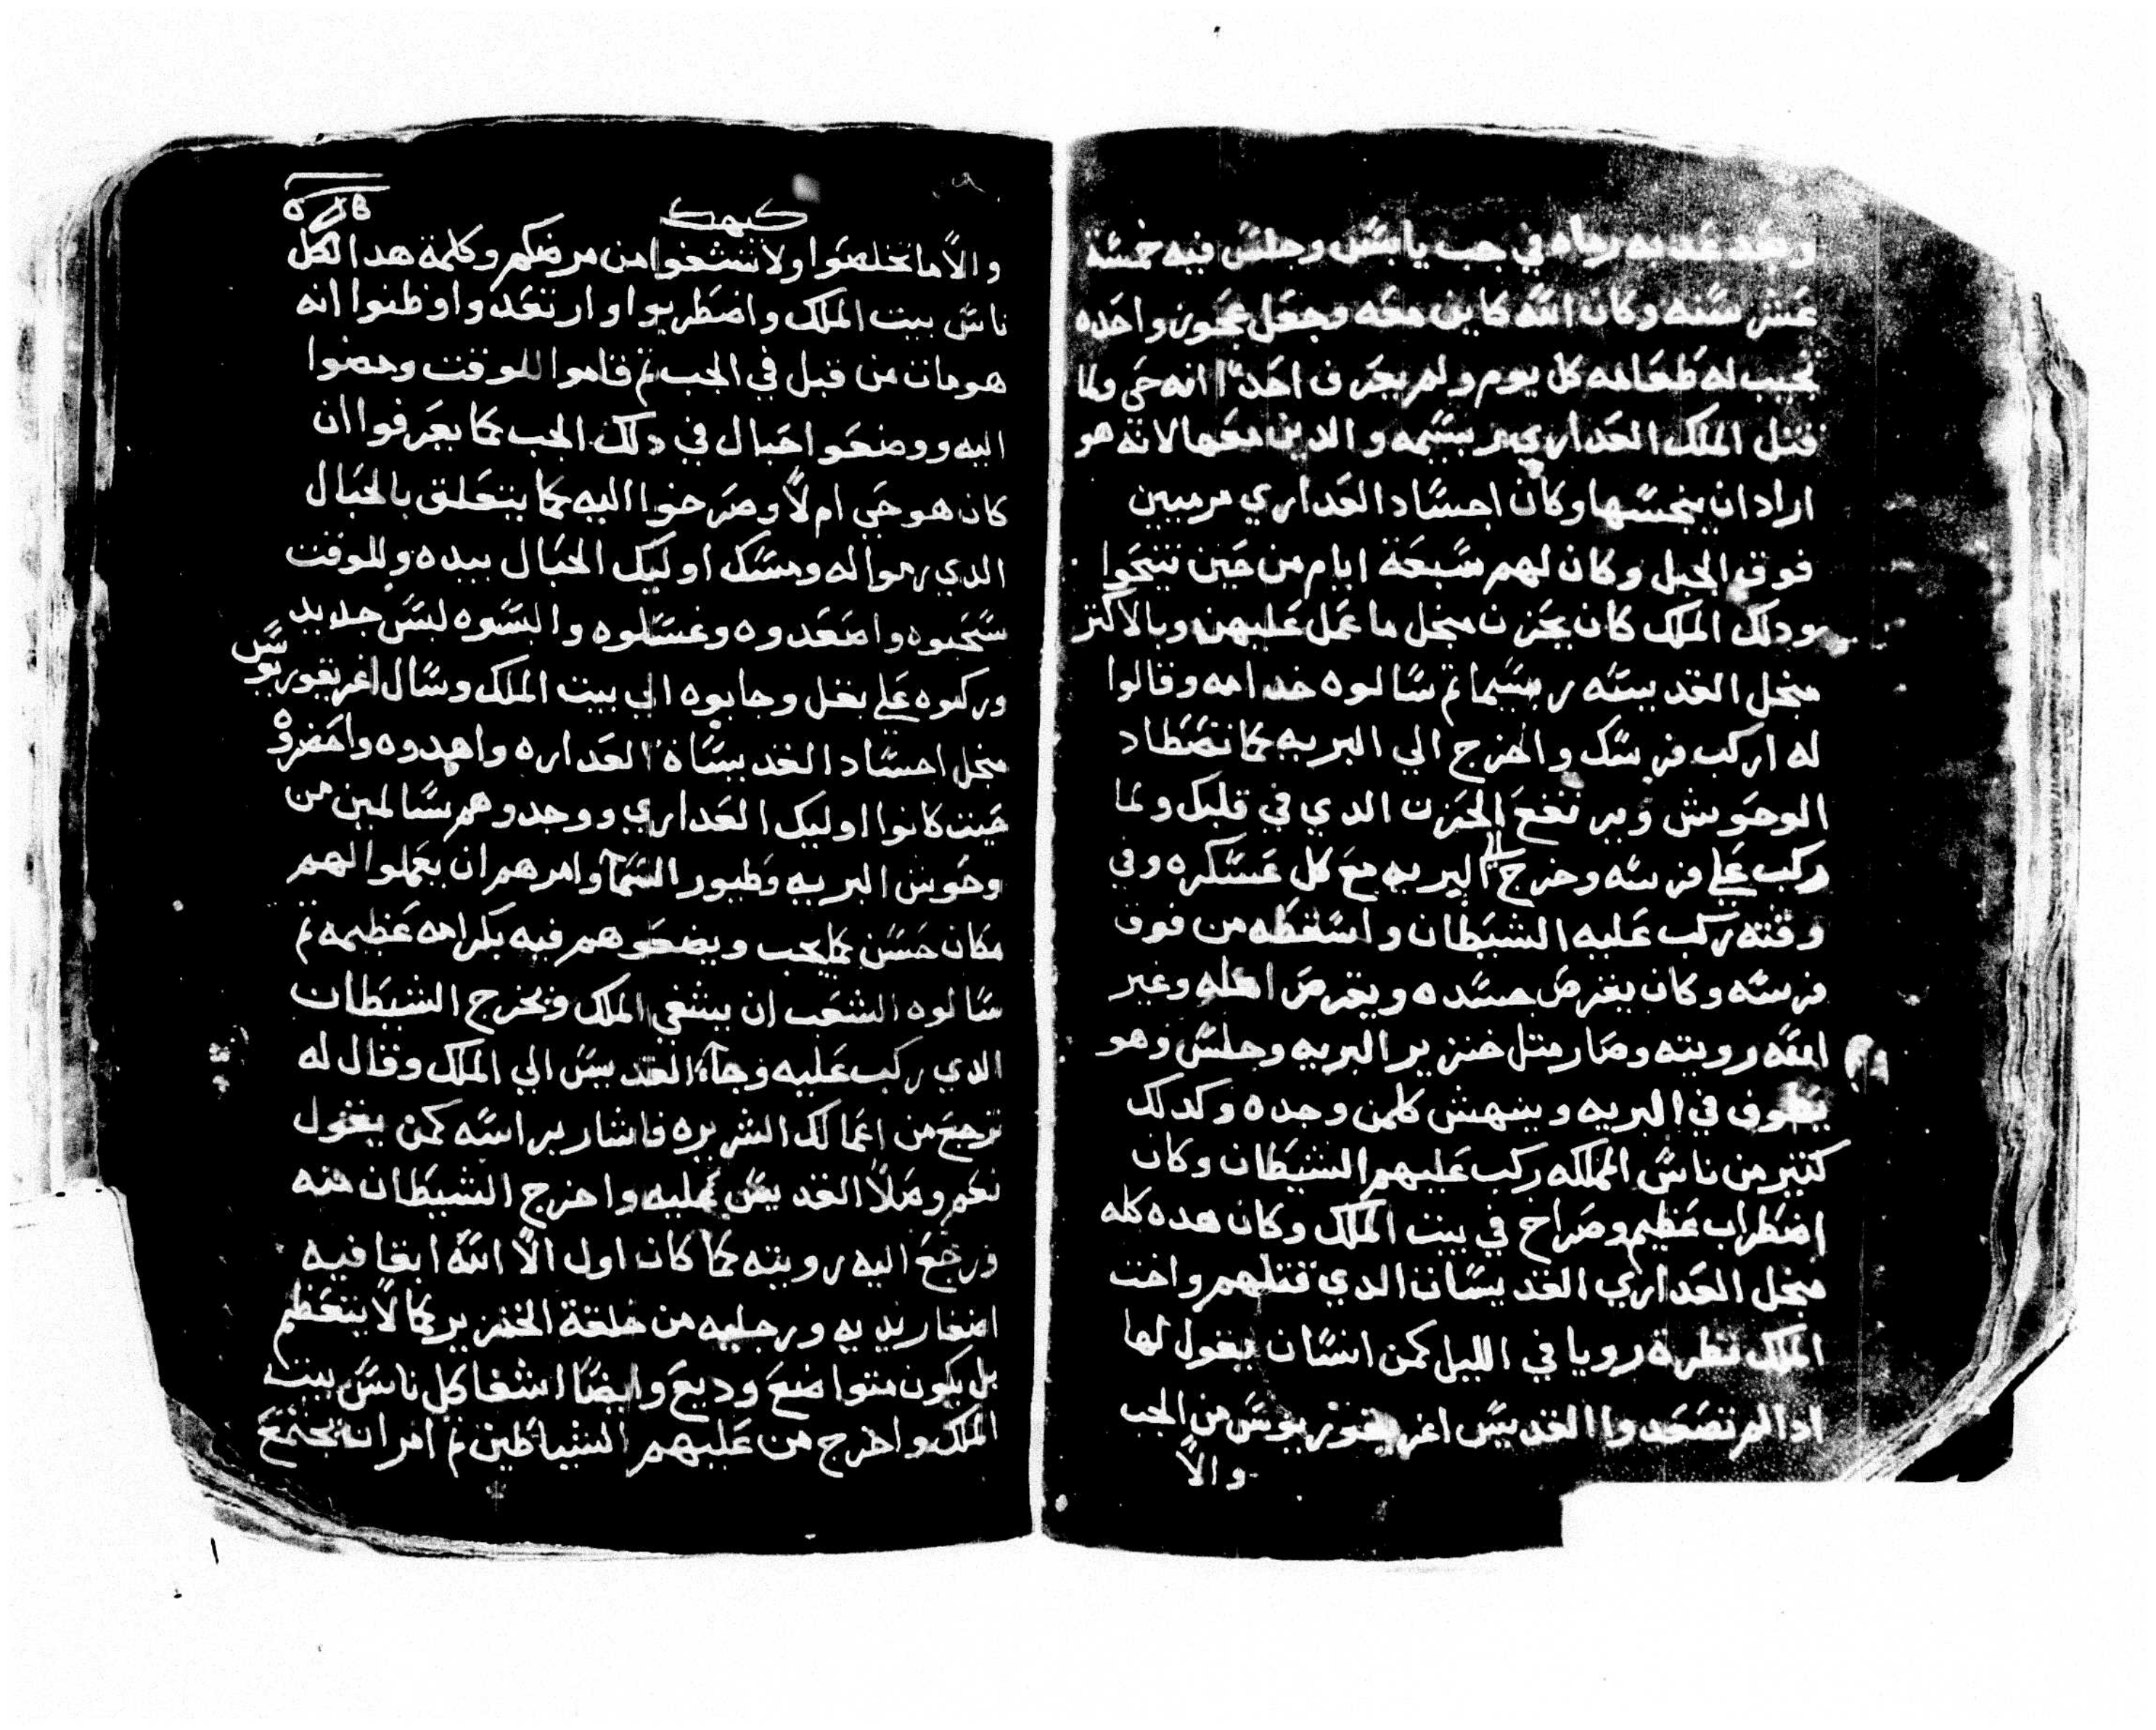 وبعد عدبه رماه في جب يابس وجلس فيه خمسة
عشر سنه وكان الله كاين معه وجعل عجوز واحده
تجيب له طعامه كل يوم ولم يعرف احدًا انه حي ولما
قتل الملك العداري ربسيمه والدين معها لانه هو
اراد ان ينجسها وكان اجساد العداري مرميين
فوق الجبل وكان لهم سبعة ايام من حين تنيحوا
ودلك الملك كان يحزن منجل ما عمل عليهن وبالاكتر
منجل القديسه ربسيما تم سالوه خدامه وقالوا
له اركب فرسك واخرج الي البريه كما تصطاد
الوحوش ويرتفع الحزن الدي في قلبك ولما
ركب علي فرسه وخرج الي البريه مع كل عسكره وفي
وقته ركب عليه الشيطان واسقطه من فوق
فرسه وكان يقرص جسده ويقرص اهله وغير
الله رويته وصار متل خنزير البريه وجلس وهو
يطوف في البريه وينهش كلمن وجده وكدلك
كتير من ناس المملكه ركب عليهم الشيطان وكان
اضطراب عظيم وصراخ في بيت الملك وكان هده كله
منجل العداري القديسات الدي قتلهم واخت
الملك نظرة رويا في الليل كمن انسان يقول لها
ادا لم تصعدوا القديس اغريغوريوس من الجب
والاً
كيهك
والاً ما تخلصوا ولا تشفوا من مرضكم وكلمة هدا لكل
ناس بيت الملك واضطربوا وارتعدوا وظنوا انه
هو مات من قبل في الجب تم قاموا للوقت ومضوا
اليه ووضعوا احبال في دلك الجب كما يعرفوا ان
كان هو حي ام لاً وصرخوا اليه كما يتعلق بالحبال
الدي رموا له ومسك اوليك الحبال بيده وللوقت
سحبوه واصعدوه وغسلوه والبسوه لبس جديد
وركبوه علي بغل وجابوه الي بيت الملك وسال اغريغوريوس
منجل اجساد القديساة العداره واهدوه واحضروه
حيت كانوا اوليك العداري ووجدوهم سالمين من
وحوش البريه وطيور السمآ وامرهم ان يعملوا لهم
مكان حسن كما يجب ويضعوهم فيه بكرامه عظيمه تم
سالوه الشعب ان يشفي الملك ويخرج الشيطان
الدي ركب عليه وجآء القديس الي الملك وقال له
ترجع من اعمالك الشريره فاشار براسه كمن يقول
نعم وصلاً القديس عليه واخرج الشيطان منه
ورجع اليه رويته كما كان اول الاً الله ابقا فيه
اضفار يديه ورجليه من خلقة الخنزير كما لاً يتعظم
بل يكون متواضع وديع وايضًا اشفا كل ناس بيت
الملك واخرج من عليهم الشياطين تم امر انه يجتمع